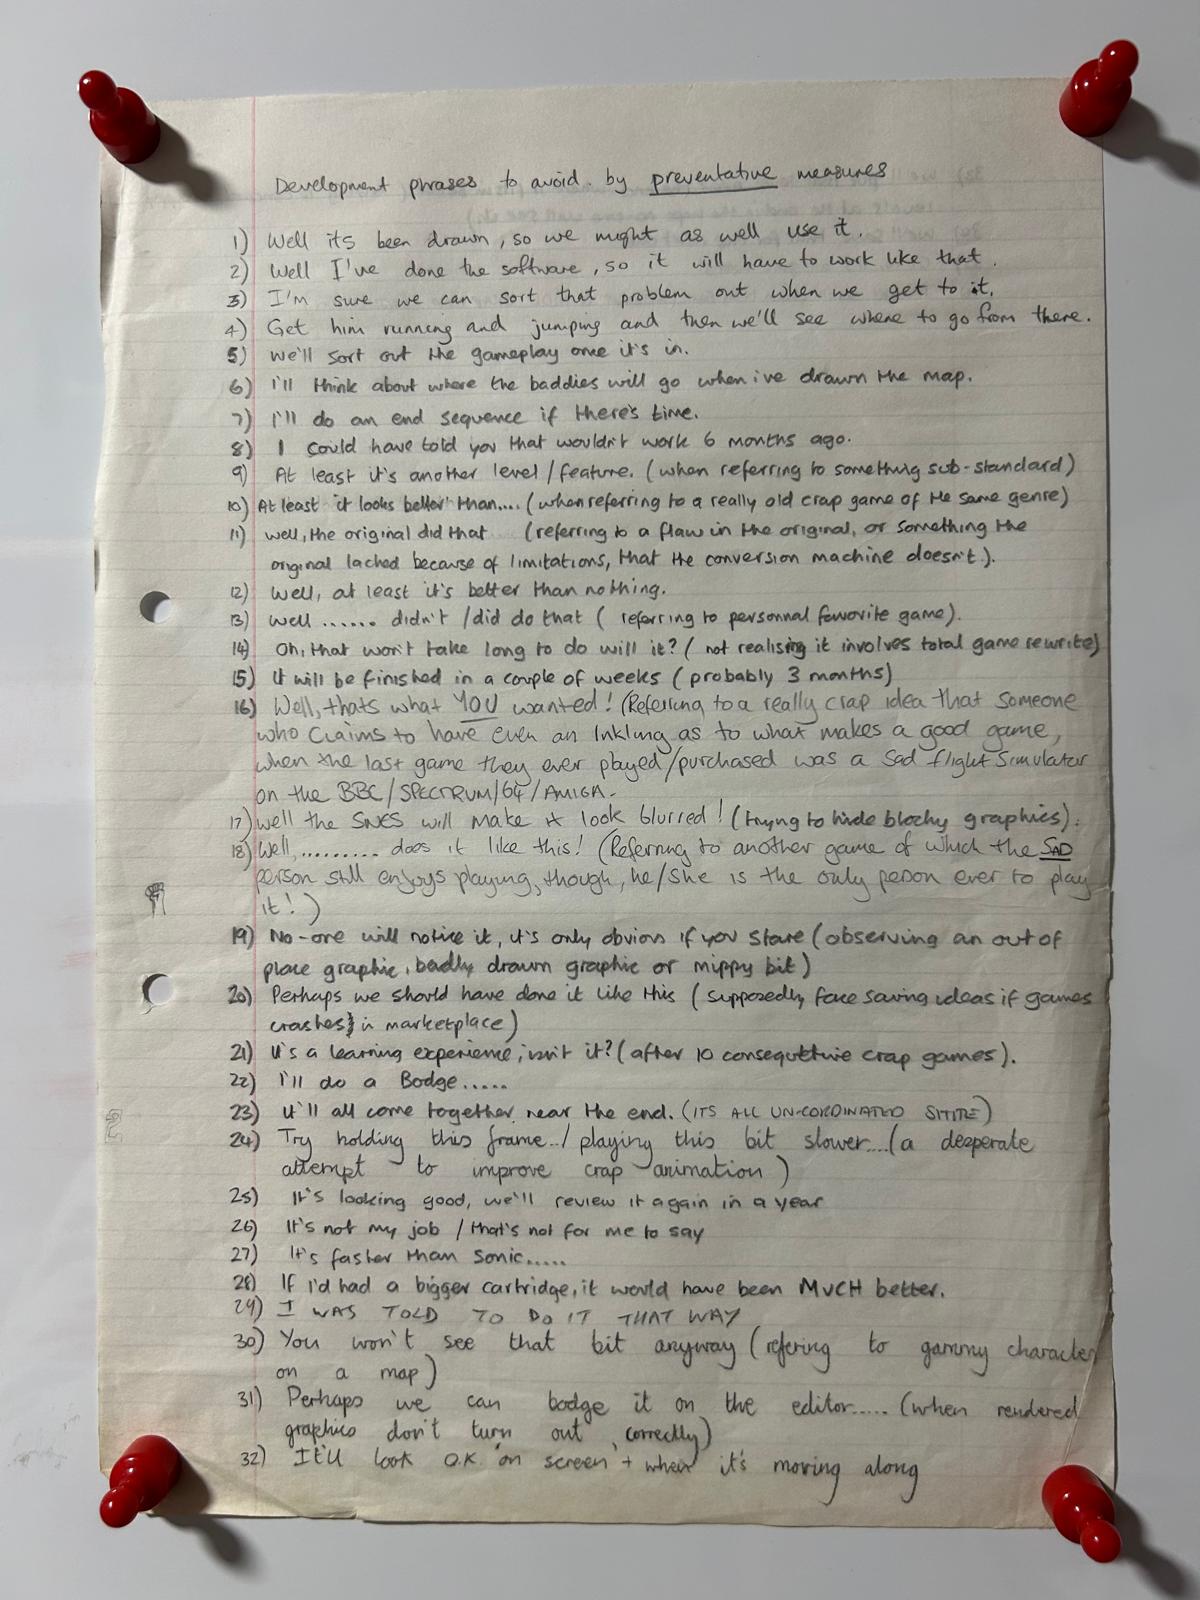 Development phrases to avoid. by preventative measures
1) Well its been drawn, so we might as well use it.
2) Well I've done the software, so it will have to work like that.
3) I'm sure we can sort that problem out when we get to it.
4) Get him running and jumping and then we'll see where to go from there.
5) We'll sort out the gameplay once it's in.
6) I'll think about where the baddies will go when i've drawn the map.
7) I'll do an end sequence if there's time.
8) I could have told you that wouldn't work 6 months ago.
9) At least it's another level/feature. (when referring to something sub-standard)
10) At least it looks better than.... (when referring to a really old crap game of the same genre)
11) well, the original did that (referring to a flaw in the original, or something the
original lacked because of limitations, that the conversion machine doesn't).
12) Well, at least it's better than nothing.
13) Well ...... didn't /did do that ( referring to personnal favorite game).
14) Oh, that won't take long to do will it? ( not realising it involves total game rewrite)
15) It will be finished in a couple of weeks ( probably 3 months)
16) Well, thats what YOU wanted! (Referring to a really crap idea that someone
who claims to have even an Inkling as to what makes a good game,
when the last game they ever played/purchased was a Sad flight Simulator
on the BBC/SPECTRUM/64/AMIGA.
17) well the SNES will make it look blurred! (trying to hide blochy graphics).
18) Well,......... does it like this! (Referring to another game of which the SAD
person still enjoys playing, though, he/she is the only person ever to play
it!)
19) No-one will notice it, it's only obvious if you stare (observing an out of
place graphic, badly drawn graphic or mippy bit)
20) Perhaps we should have done it like this ( supposedly face saving ideas if games
crashes in marketplace)
21) It's a learning experience, isn't it? (after 10 consequtive crap games).
22) I'll do a Bodge.....
23) It'll all come together near the end. (ITS ALL UN-CORDINATED SHITE)
24) Try holding this frame../playing this bit slower....(a desperate
attempt to improve crap animation)
25) It's looking good, we'll review it again in a year
26) It's not my job / that's not for me to say
27) It's faster than Sonic.....
28) If I'd had a bigger cartridge, it would have been MUCH better.
29) I WAS TOLD TO DO IT THAT WAY
30) You won't see that bit anyway (refering to gammy character
on a map)
31) Perhaps we can bodge it on the editor..... (when rendered
graphics don't turn out correctly)
32) It'll look O.K. on screen + when it's moving along